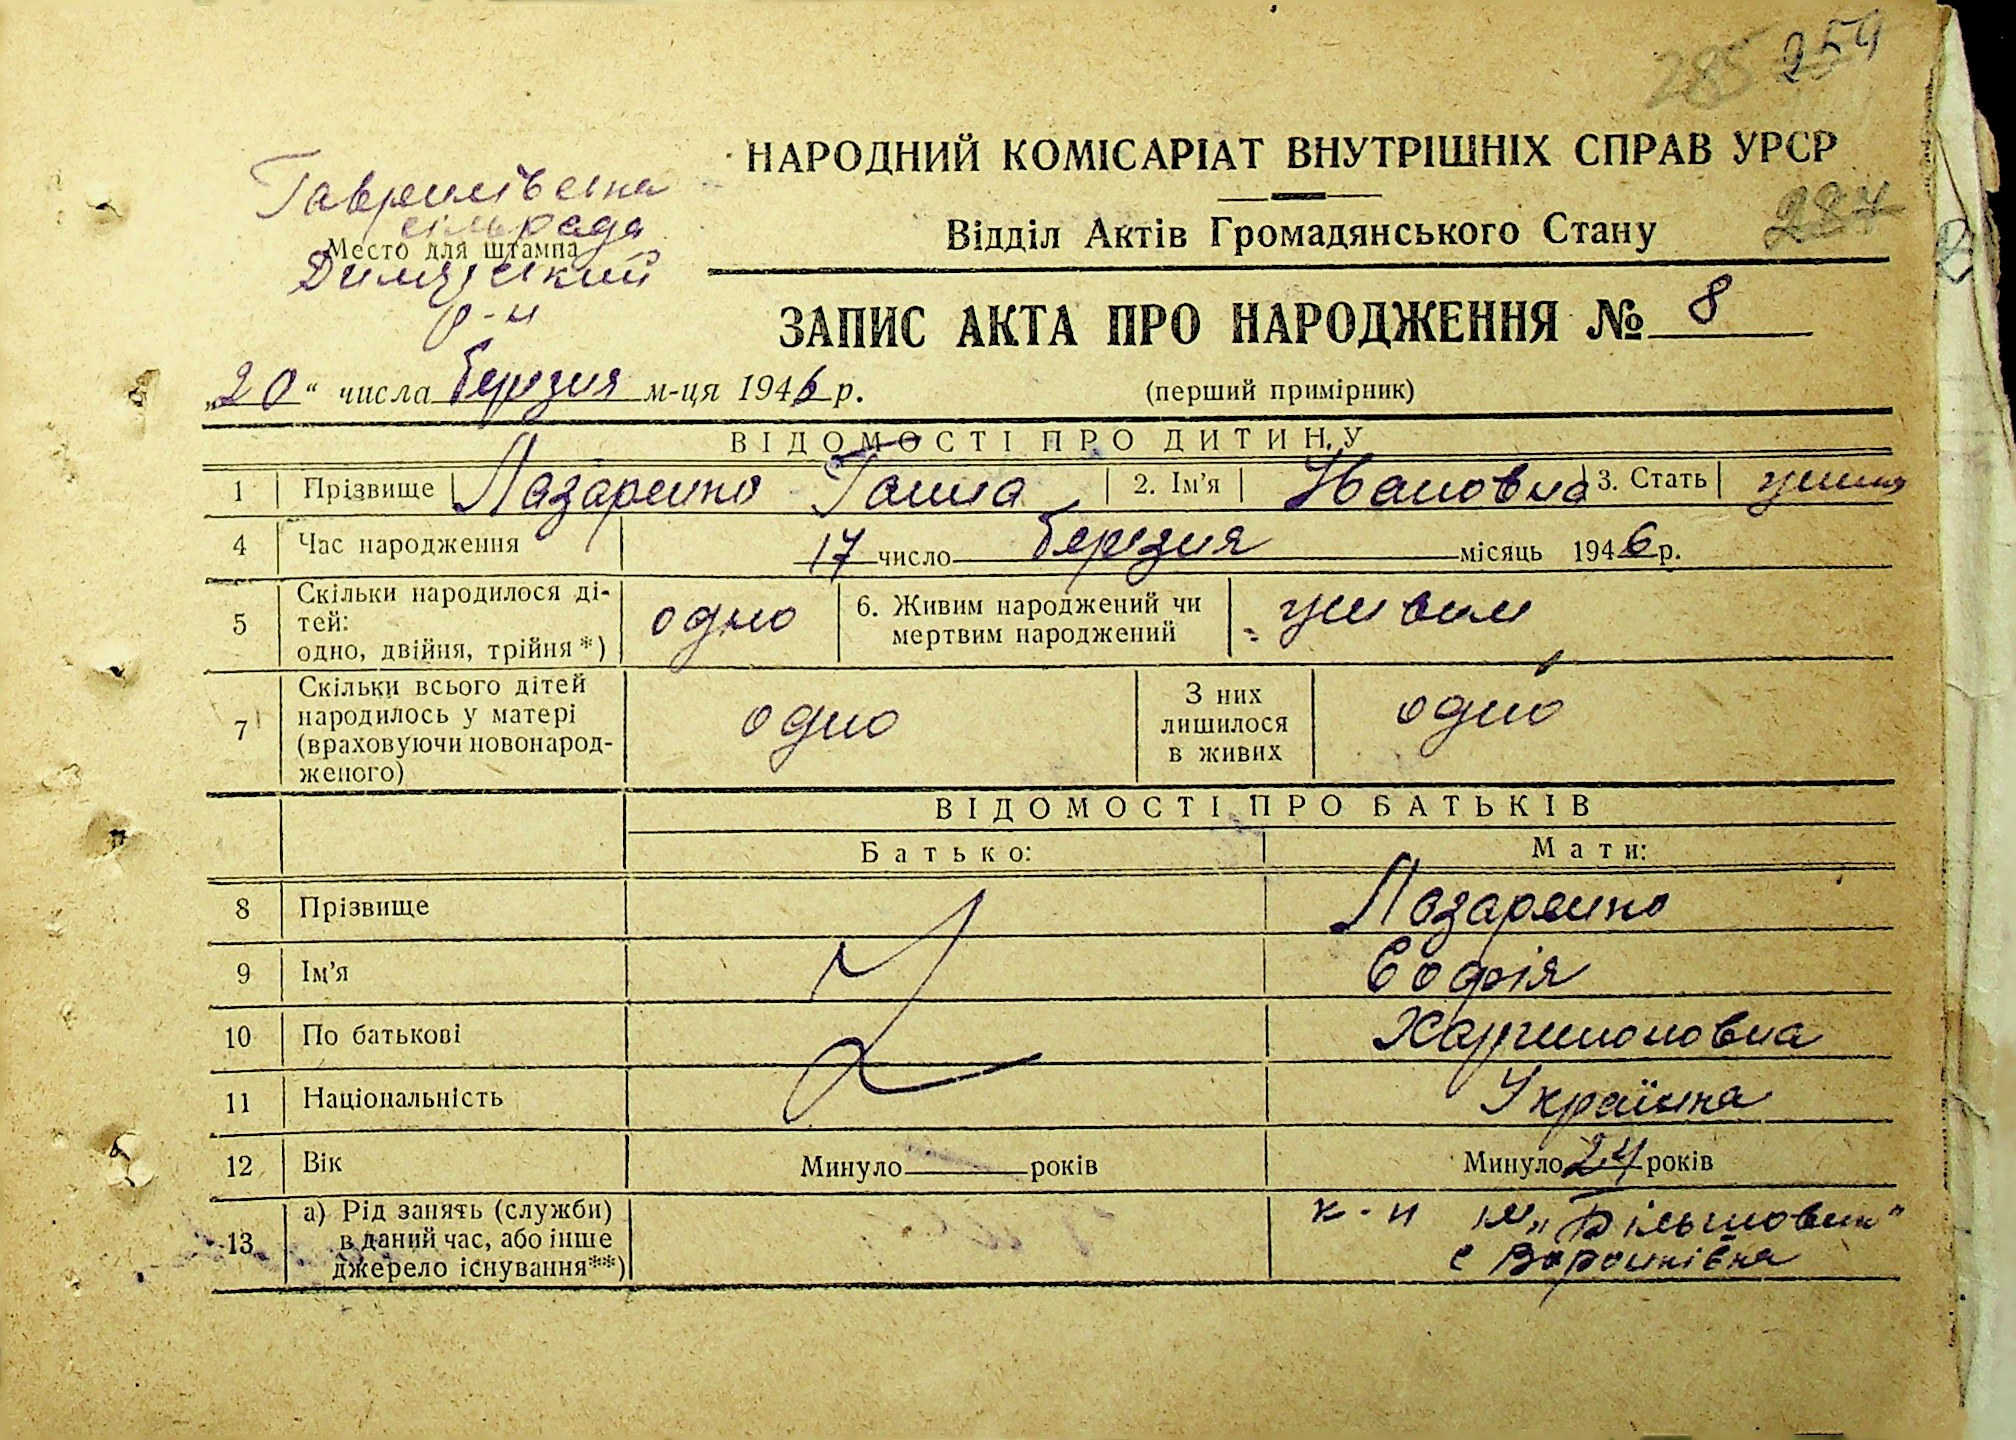 285 254
НАРОДНИЙ КОМІСАРІАТ ВНУТРІШНІХ СПРАВ УРСР
284
Відділ Актів Громадянського Стану
Гаврилівська
сільрада
Место для штампа
Димерський
р-н
ЗАПИС АКТА ПРО НАРОДЖЕННЯ № 8
„20“ числа березня м-ця 1946 р.
(перший примірник)
ВІДОМОСТІ ПРО ДИТИНУ
1 Прізвище Лазаренко Ганна 2. Ім'я Івановна 3. Стать жіноч
4 Час народження 17 число березня місяць 1946 р.
5 Скільки народилося ді-
тей:
одно, двійня, трійня*) одно
6. Живим народжений чи
мертвим народжений живим
7 Скільки всього дітей
народилось у матері
(враховуючи новонарод-
женого) одно
З них
лишилося
в живих одно
ВІДОМОСТІ ПРО БАТЬКІВ
Батько: Мати:
8 Прізвище Лазаренко
9 Ім'я Софія
10 По батькові Харитоновна
11 Національність Українка
12 Вік Минуло років Минуло 24 років
13 а) Рід занять (служби)
в даний час, або інше
джерело існування**)
к-п „Більшовик“
с